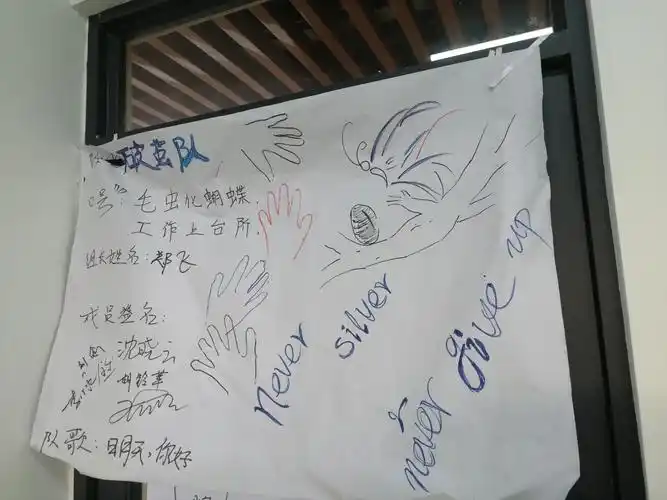 破茧队
毛虫化蝴蝶,
工作上台阶.
组长姓名: 郑飞
成员签名:
沈晓云
队歌: 明天,你好
never silver
never give up